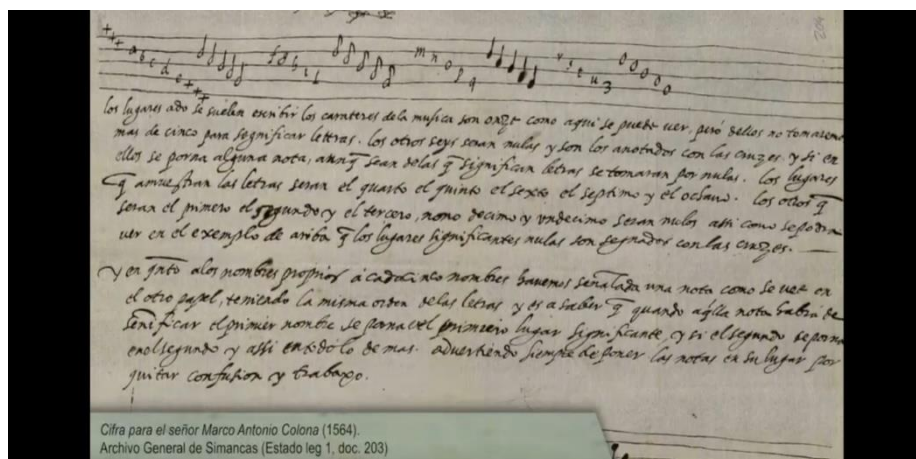 204
a b c d e f g h i l m n o p q r s t u z
los lugares ado se suelen escribir los carateres dela musica son onze como aqui se puede ver, pero dellos no tomaremos
mas de cinco para segnificar lettras. los otros seys seran nulas y son los anotados con las cruzes. y si en
ellos se porna alguna nota, aunq̃ sean delas q̃ significan letras se tomaran por nulas. los lugares
q̃ amuestran las letras seran el quarto el quinto el sexto el septimo y el octauo. los otros q̃
seran el primero el segundo y el tercero, nono decimo y vndecimo seran nulos assi como se podra
uer en el exemplo de ariba q̃ los lugares significantes nulas son segnados con las cruzes.
y en q̃nto alos nombres proprios a cada cinco nombres hauemos señalada una nota como se vee en
el otro papel, teniendo la misma orden delas letras y es a saber q̃ quando aq̃lla nota habra de
senificar el primer nombre se porna nel primero lugar significante, y si el segundo se porna
enel segundo y assi en todo lo de mas. aduertiendo siempre de poner las notas en su lugar por
quitar confusion y trabaxo.
Cifra para el señor Marco Antonio Colona (1564).
Archivo General de Simancas (Estado leg 1, doc. 203)